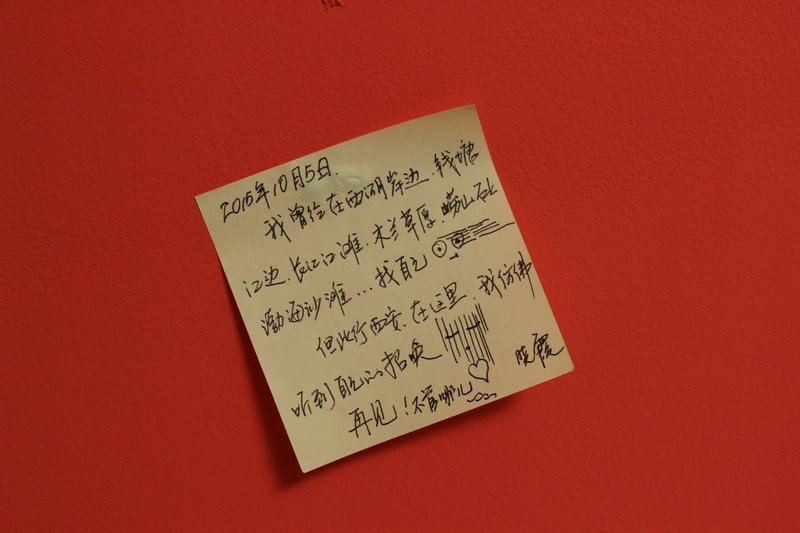 2015年10月5日.
我曾经在西湖岸边.钱塘
江边.长江江滩.木兰草原.崂山石
渤海沙滩...找自己
但此行西安.在这里.我仿佛
听到自己的招唤
再见!不管哪儿 晓霞